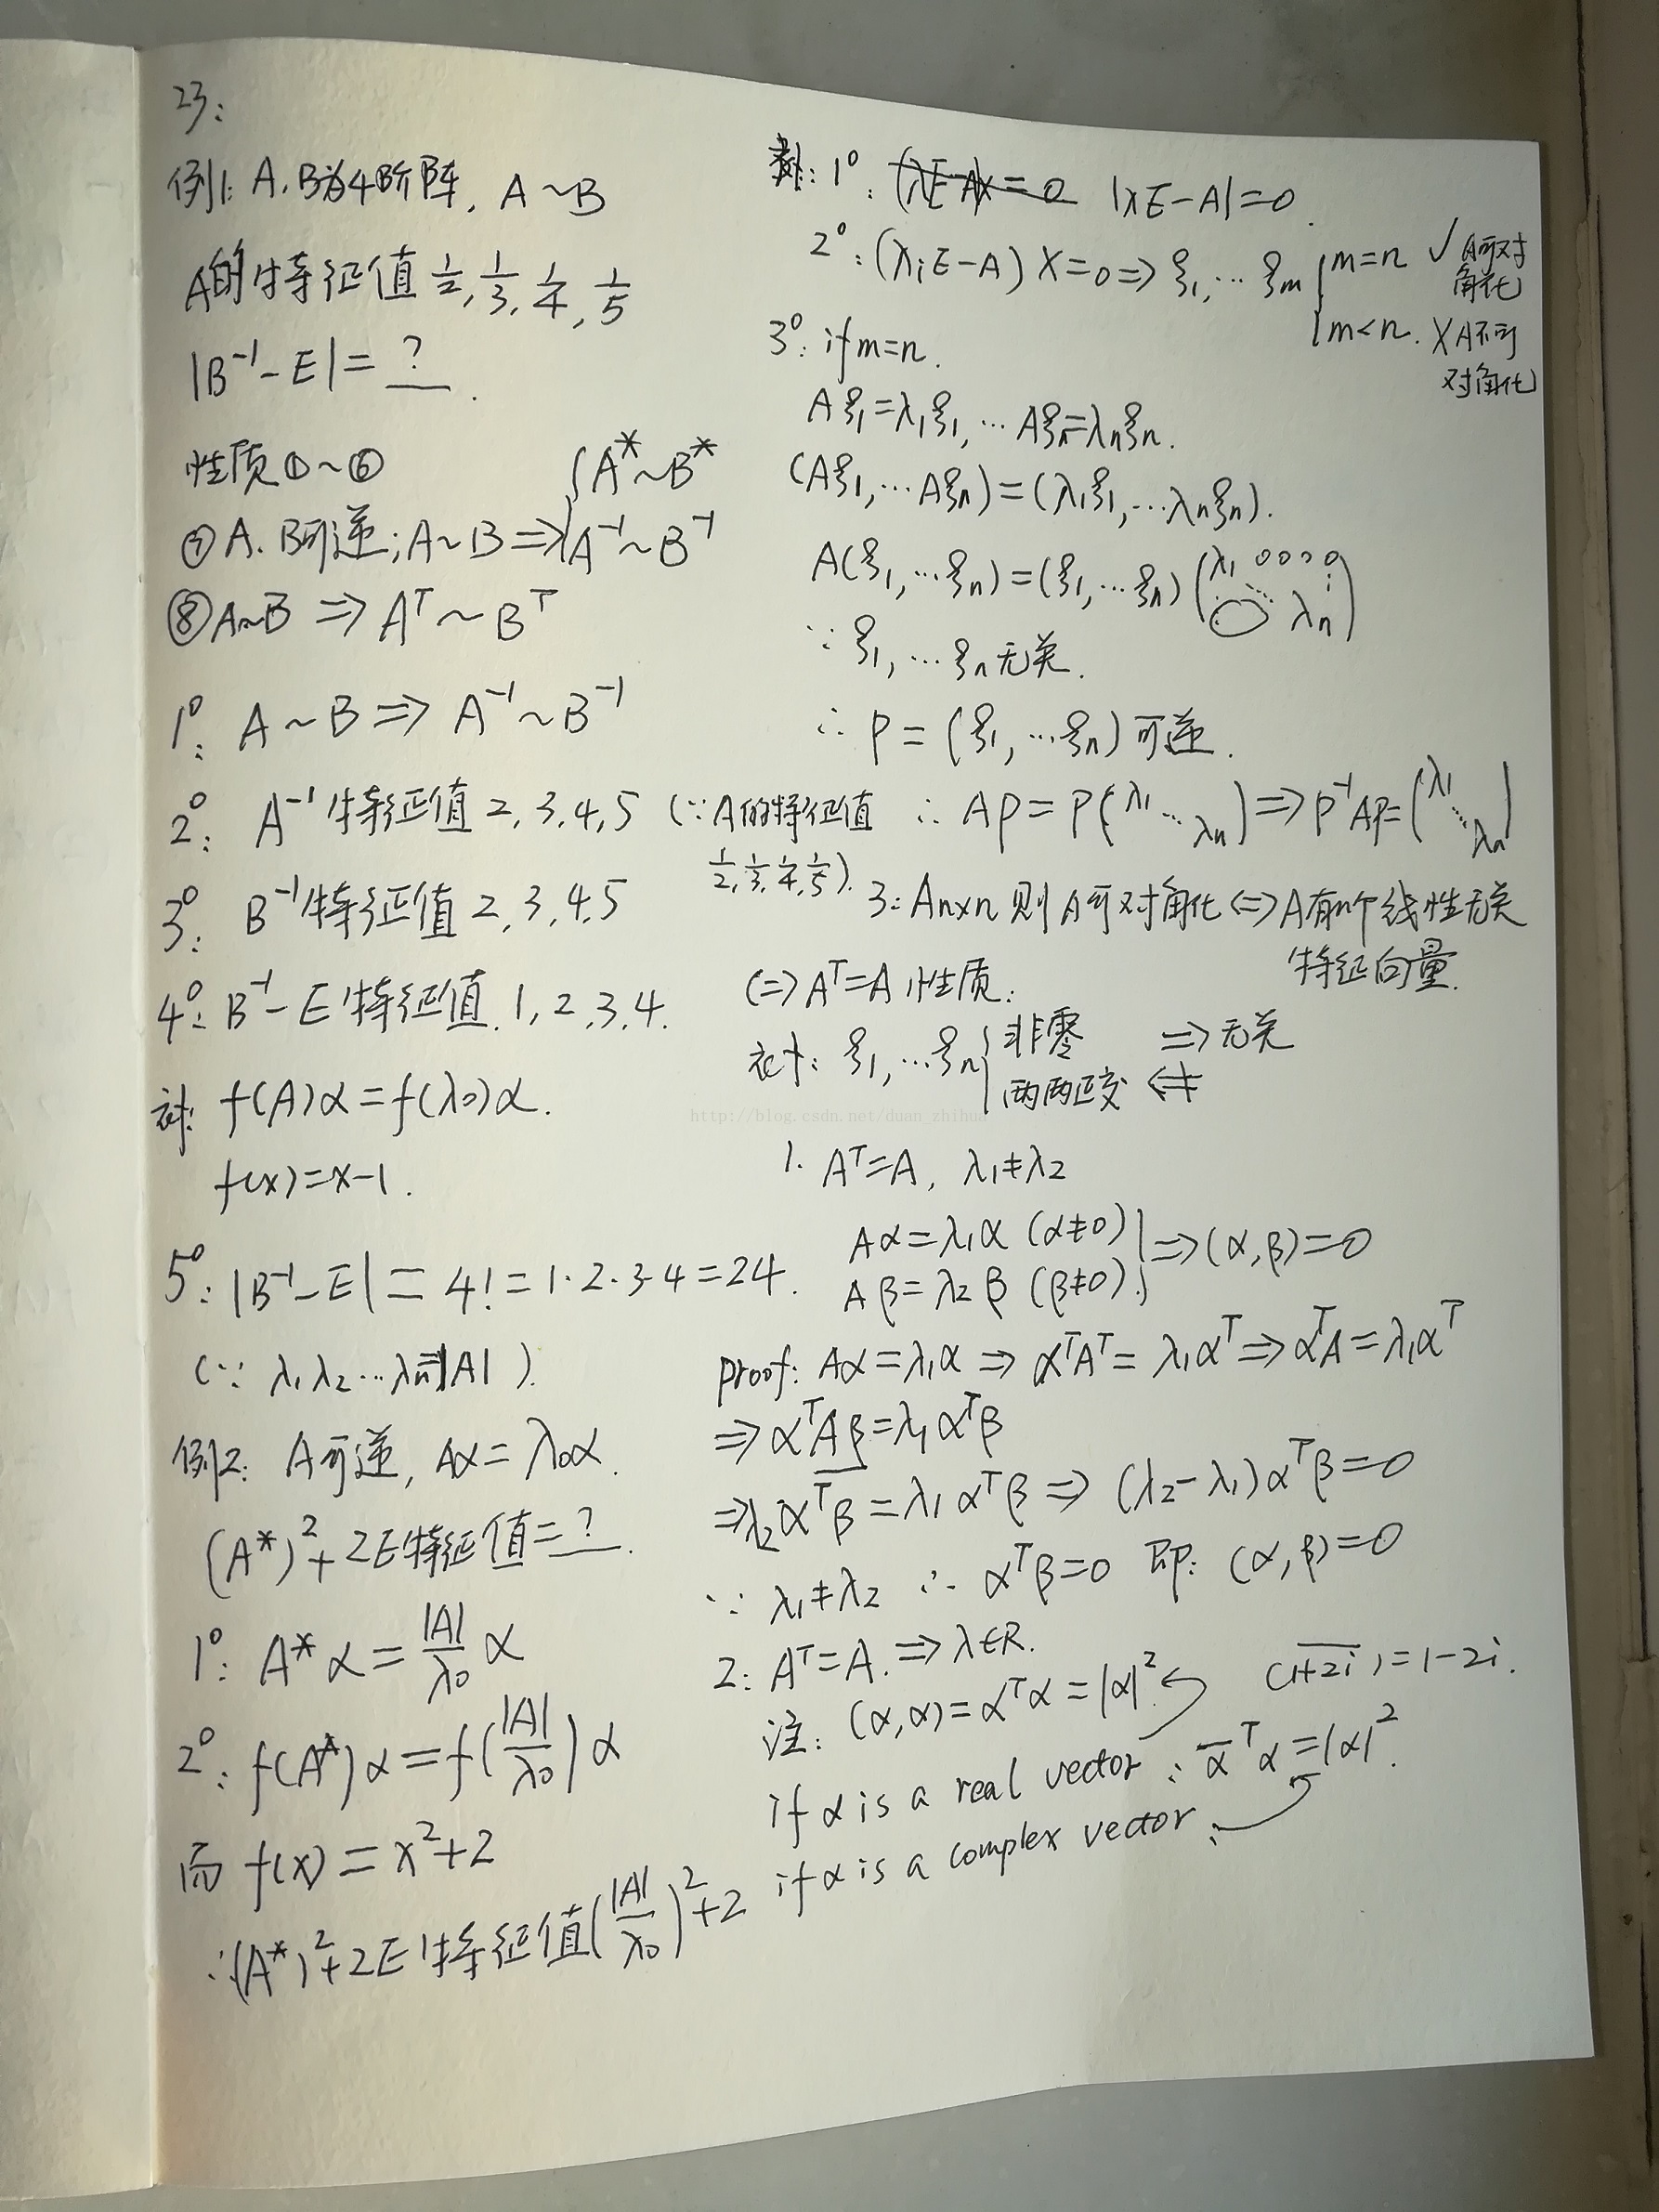 23:
例1: A、B为4阶阵, A~B
A的特征值 1/2, 1/3, 1/4, 1/5
|B⁻¹-E|= ? .
性质①~⑥
⑦A、B可逆; A~B ⇒ { A*~B*
A⁻¹~B⁻¹
⑧A~B ⇒ Aᵀ~Bᵀ
1°: A~B ⇒ A⁻¹~B⁻¹
2°: A⁻¹特征值 2,3,4,5 (∵A的特征值
1/2, 1/3, 1/4, 1/5).
3°: B⁻¹特征值 2,3,4,5
4°: B⁻¹-E特征值. 1,2,3,4.
f(A)α=f(λ₀)α.
f(x)=x-1.
5°: |B⁻¹-E| = 4! = 1·2·3·4=24.
(∵ λ₁λ₂…λn=|A| ).
例2: A可逆, Aα=λ₀α.
(A*)²+2E特征值= ? .
1°: A*α = |A|/λ₀ α
2°: f(A*)α = f(|A|/λ₀)α
而 f(x) = x²+2
∴(A*)²+2E特征值(|A|/λ₀)²+2
1°: (λE-A)X=0 |λE-A|=0.
2°: (λᵢE-A)X=0 ⇒ ξ₁,…ξm { m=n √ A可对
角化
m<n. X A不可
对角化
3°: if m=n.
Aξ₁=λ₁ξ₁,…Aξn=λnξn.
(Aξ₁,…Aξn)=(λ₁ξ₁,…λnξn).
A(ξ₁,…ξn)=(ξ₁,…ξn)(λ₁ 0 0 0 0 ⋱ ⋮ 0 λn)
∵ ξ₁,…ξn无关.
∴ P=(ξ₁,…ξn)可逆.
∴ AP=P(λ₁ ⋱ λn) ⇒ P⁻¹AP=(λ₁ ⋱ λn)
3: An×n 则A可对角化 ⇔ A有n个线性无关
特征向量.
(=) Aᵀ=A 性质:
ξ₁,…ξn { 非零 ⇒ 无关
两两正交 ⇍
http://blog.csdn.net/duan_zhihua
1. Aᵀ=A, λ₁≠λ₂
Aα=λ₁α (α≠0) } ⇒ (α,β)=0
Aβ=λ₂β (β≠0)
proof: Aα=λ₁α ⇒ αᵀAᵀ=λ₁αᵀ ⇒ αᵀA=λ₁αᵀ
⇒ αᵀAβ=λ₁αᵀβ
⇒ λ₂αᵀβ=λ₁αᵀβ ⇒ (λ₂-λ₁)αᵀβ=0
∵ λ₁≠λ₂ ∴ αᵀβ=0 即: (α,β)=0
2: Aᵀ=A. ⇒ λ∈R.
注: (α,α)=αᵀα=|α|². (1+2i)‾=1-2i.
if α is a real vector ; ᾱᵀα=|α|².
if α is a complex vector :